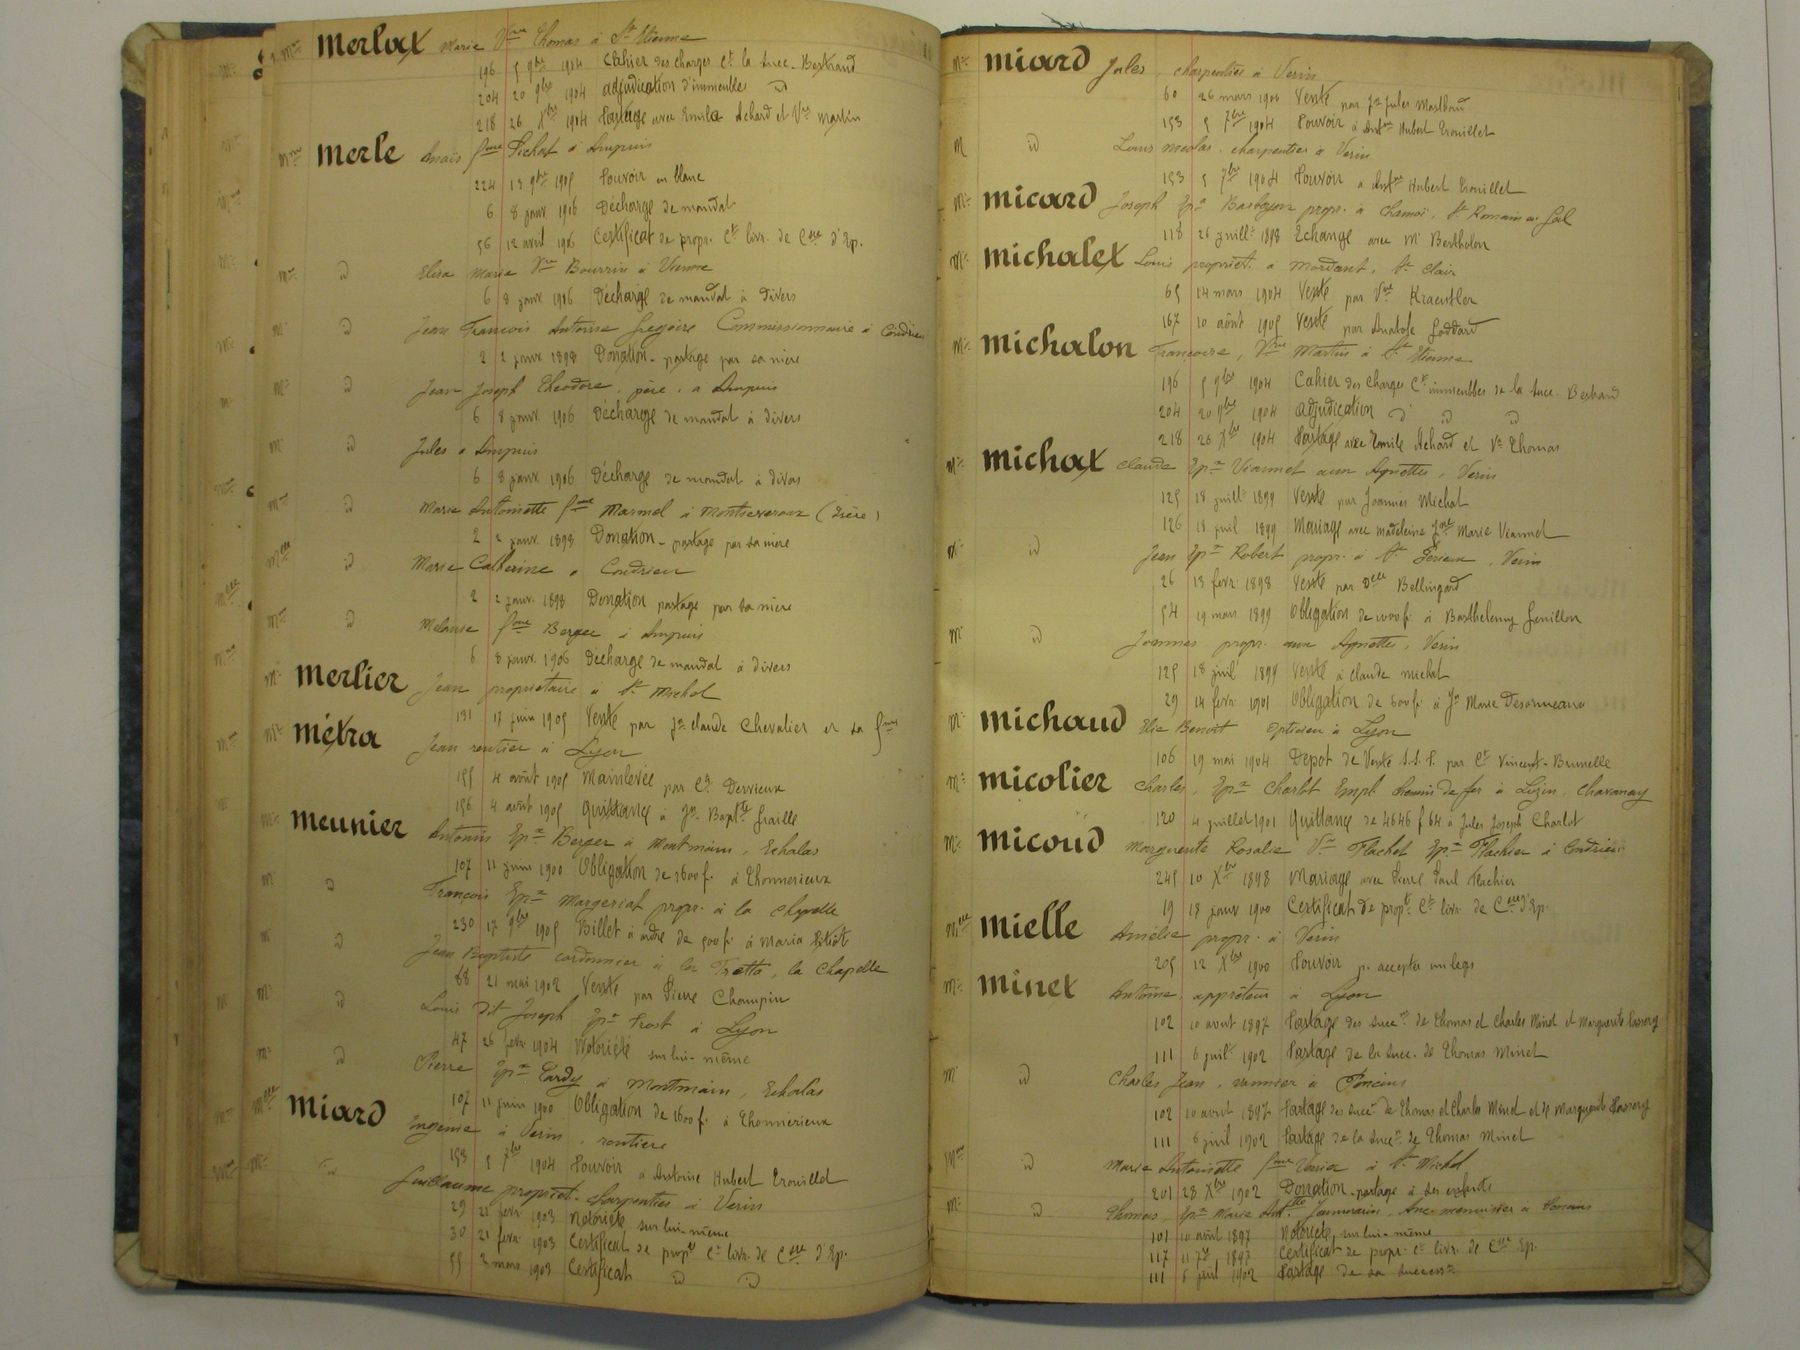 Mme Merlat Marie Vve Thomas à St Etienne
196 5 9bre 1904 Cahier des charges Ct la succ. Bertrand
204 20 9bre 1904 adjudication d'immeuble d
218 26 Xbre 1904 Partage avec Emile Achard et Vve Martin
Mme Merle Anaïs fme Pichat à Ampuis
224 13 9bre 1905 Pouvoir en blanc
6 8 janv. 1906 Décharge de mandat
56 12 avril 1906 Certificat de propr. Ct livr. de Csse d'Ep.
Mme d Elisa Marie Vve Bourrin à Vienne
6 8 janv. 1906 Décharge de mandat à divers
Mr d Jean François Antoine Grégoire Commissionnaire à Condrieu
2 2 janv. 1898 Donation-partage par sa mère
Mr d Jean Joseph Théodore, père, à Ampuis
6 8 janv. 1906 Décharge de mandat à divers
Mr d Jules à Ampuis
6 8 janv. 1906 Décharge de mandat à divers
Mme d Marie Antoinette fme Marmel à Montseveroux (Isère)
2 2 janv. 1898 Donation-partage par sa mère
Melle d Marie Catherine à Condrieu
2 2 janv. 1898 Donation partage par sa mère
Mme d Mélanie fme Berger à Ampuis
6 8 janv. 1906 Décharge de mandat à divers
Mr Merlier Jean propriétaire à St Michel
131 17 juin 1905 Vente par Jn Claude Chevalier et sa fme
Mr Métra Jean rentier à Lyon
155 4 août 1905 Mainlevée par Ct Dervieux
156 4 août 1905 Quittance à Jn Baptte Graille
Mr Meunier Antonin Epx Berger à Montmain, Echalas
107 11 juin 1900 Obligation de 1600 f. à Thonnerieux
Mr d François Epx Margeriat propr. à la Chapelle
230 17 9bre 1905 Billet à ordre de 500 f. à Maria
Mr d Jean Baptiste cordonnier à la Chapelle
68 21 mai 1902 Vente par Pierre Champin
Mr d Louis dit Joseph Epx Prost à Lyon
47 26 fevr. 1904 Notoriété sur lui-même
Mr d Pierre Epx Tardy à Montmain, Echalas
107 11 juin 1900 Obligation de 1600 f. à Thonnerieux
Melle Miard Eugénie à Verin, rentière
153 5 7bre 1904 Pouvoir à Antoine Hubert Trouillet
Mr d Guillaume propriét. charpentier à Verin
29 21 fevr. 1903 Notoriété sur lui-même
30 21 fevr. 1903 Certificat de propté Ct livr. de Csse d'Ep.
55 2 mars 1903 Certificat d d
Mr Miard Jules, charpentier à Verin
60 26 mars 1901 Vente par Jn Jules
153 5 7bre 1904 Pouvoir à Antne Hubert Trouillet
M d Louis Nicolas, charpentier à Verin
153 5 7bre 1904 Pouvoir à Antne Hubert Trouillet
Mr Micard Joseph Epx propr. à Chamoi, St Romain en Gal
118 26 juillt 1898 Echange avec Mr Bertholon
Mr Michalet Louis propriét. à Mordant, St Clair
65 14 mars 1904 Vente par Vve Kraeutler
167 10 août 1905 Vente par Anatole Goddard
Mme Michalon Françoise, Vve Martin à St Etienne
196 5 9bre 1904 Cahier des charges Ct immeubles de la succ. Bertrand
204 20 9bre 1904 adjudication d d d
218 26 Xbre 1904 Partage avec Emile Achard et Ve Thomas
Mr Michat Claude Epx Viannet aux Agnettes, Verin
125 18 juillt 1899 Vente par Joannès Michat
126 18 juil 1899 Mariage avec Madeleine Jne Marie Viannet
Mr d Jean Epx Robert propr. à Verin
26 13 fevr. 1898 Vente par Delle Bellingard
54 19 mars 1899 Obligation de 1000 f. à Barthelemy Genillon
Mr d Joannès propr. aux Agnettes, Verin
125 18 juil 1899 Vente à Claude Michat
29 14 fevr. 1901 Obligation de 600 f. à Jn Marie Désormeaux
Mr Michaud Elie Benoit opticien à Lyon
106 19 mai 1904 Dépôt de Vente S.S.P. par Ct Vincent-Brunelle
Mr Micolier Charles, Epx Charlot Empl. chemin de fer à Luzin, Chavanay
120 4 juillet 1901 Quittance de 4646 f 64 à Jules Joseph Charlot
Mme Micoud Marguerite Rosalie Vve Flachet Epx Flachier à Condrieu
245 10 Xbre 1898 Mariage avec Pierre Paul Flachier
19 18 janv 1900 Certificat de propté Ct livr. de Csse d'Ep.
Melle Mielle Amélie propr. à Verin
205 12 Xbre 1900 Pouvoir p. accepter un legs
Mr Minet Antoine, apprêteur à Lyon
102 10 avril 1897 Partage des succns de Thomas et Charles Minet et Marguerite Passery
111 6 juilt 1902 Partage de la succ. de Thomas Minet
Mr d Charles Jean, vannier à Poncins
102 10 avril 1897 Partage des succns de Thomas et Charles Minet et de Marguerite Passery
111 6 juil 1902 Partage de la succn de Thomas Minet
Mme d Marie Antoinette fme Varier à St Michel
201 28 Xbre 1902 Donation-partage à ses enfants
Mr d Thomas, Epx Marie Antte Jammarin, Anc. menuisier à
101 10 avril 1897 Notoriété sur lui-même
117 11 1897 Certificat de propr. Ct livr. de Csse Ep.
111 6 juil 1902 Partage de sa success.